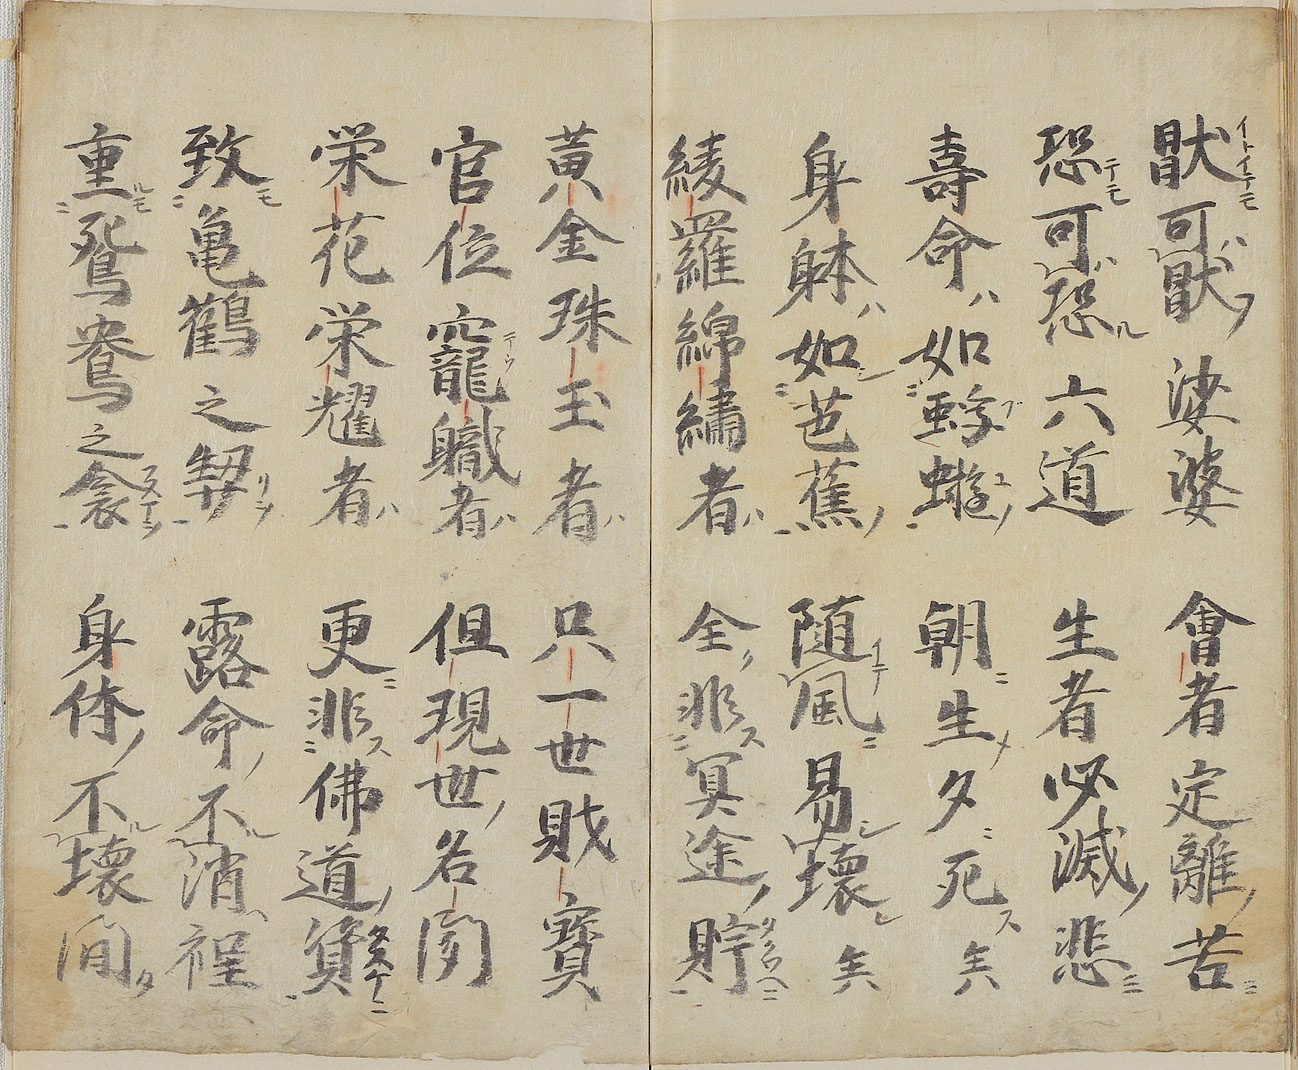 猒可猒娑婆 會者定離苦
恐可恐六道 生者必滅悲
壽命如蜉蝣 朝生夕死矣
身躰如芭蕉 随風易壊矣
綾羅綿繡者 全非冥途貯
黄金珠玉者 只一世賎寳
官位寵職者 但現世名聞
栄花栄耀者 更非佛道資
致亀鶴之契 露命不消程
重鴛鴦之衾 身体不壊間